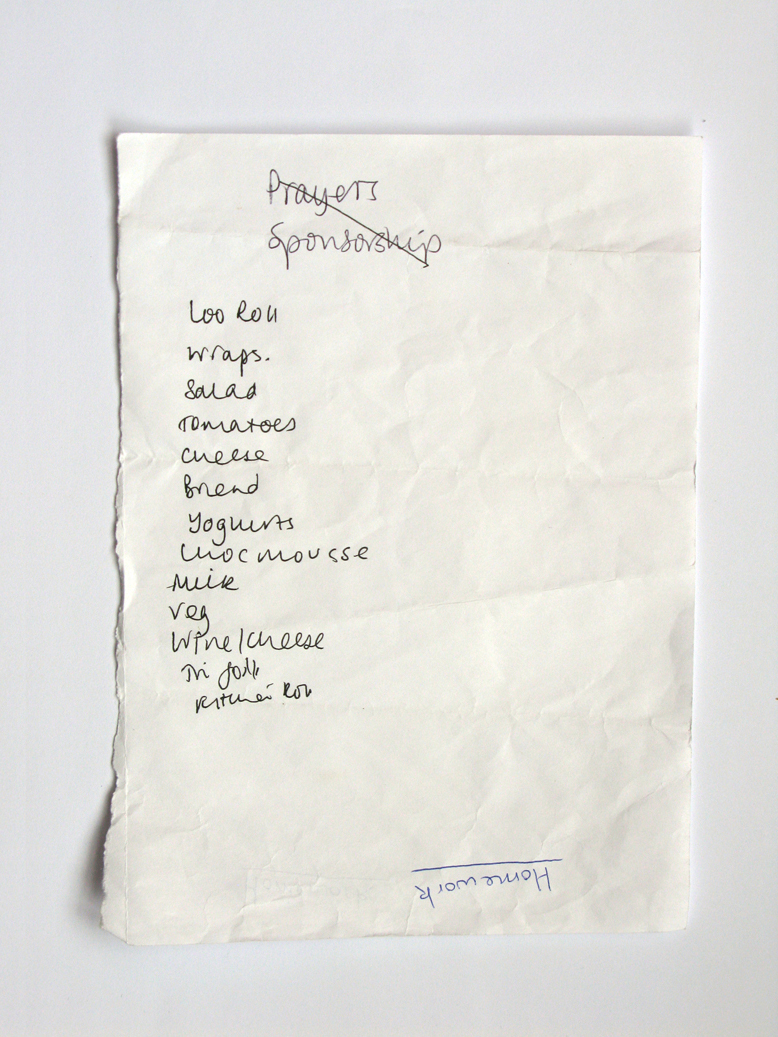 Prayers
Sponsorship
Loo Roll
wraps.
Salad
Tomatoes
cheese
Bread
Yoghurts
choc mousse
Milk
veg
Wine/cheese
Kitchen Roll
Homework